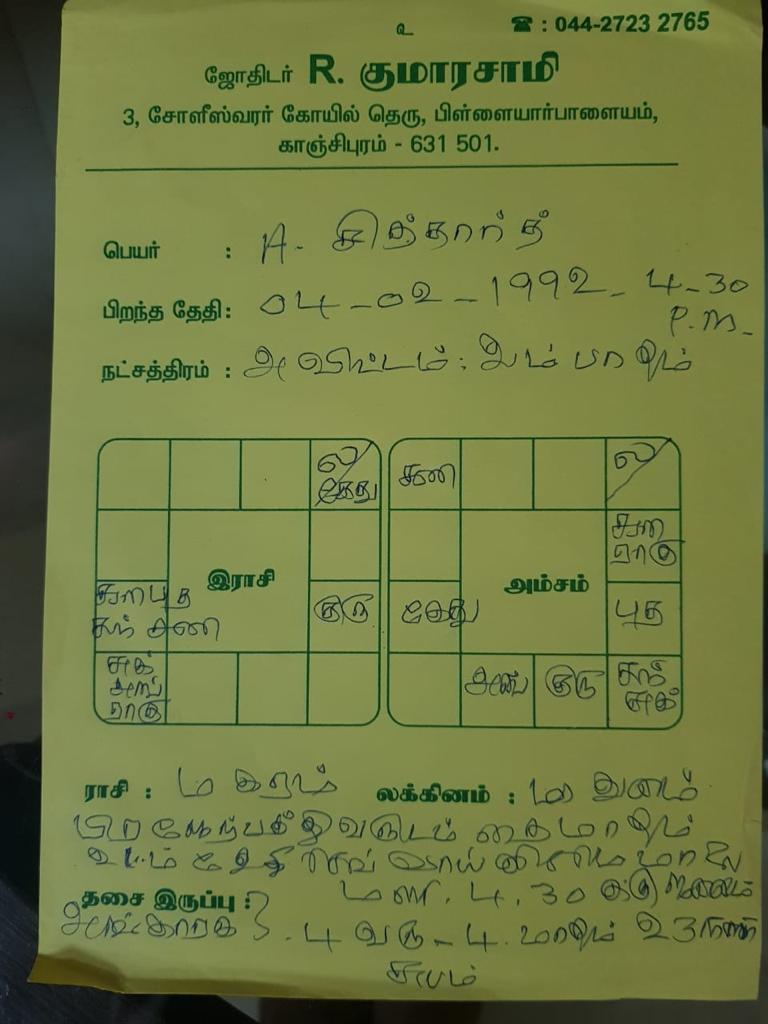 உ
☎ : 044-2723 2765
ஜோதிடர் R. குமாரசாமி
3, சோளீஸ்வரர் கோயில் தெரு, பிள்ளையார்பாளையம்,
காஞ்சிபுரம் - 631 501.
பெயர் : A. சித்தார்த்
பிறந்த தேதி: 04-02-1992- 4-30
P.M-
நட்சத்திரம் : அவிட்டம்:
ல/ கேது
சனி
ல/
சூரி ராகு
இராசி
அம்சம்
சூரி புத
சந் சனி
குரு
கேது
புத
சுக்
அங்
ராகு
அங்
குரு
சந்
சுக்
ராசி : மகரம் லக்கினம் : மிதுனம்
பிரஜோற்பத்தி வருடம் தை மாதம்
தேதி செவ்வாய் மாலை
தசை இருப்பு : மணி. 4.30
அங்காரக 4 வரு- 4. மாதம் 23 நாள்
சுபம்